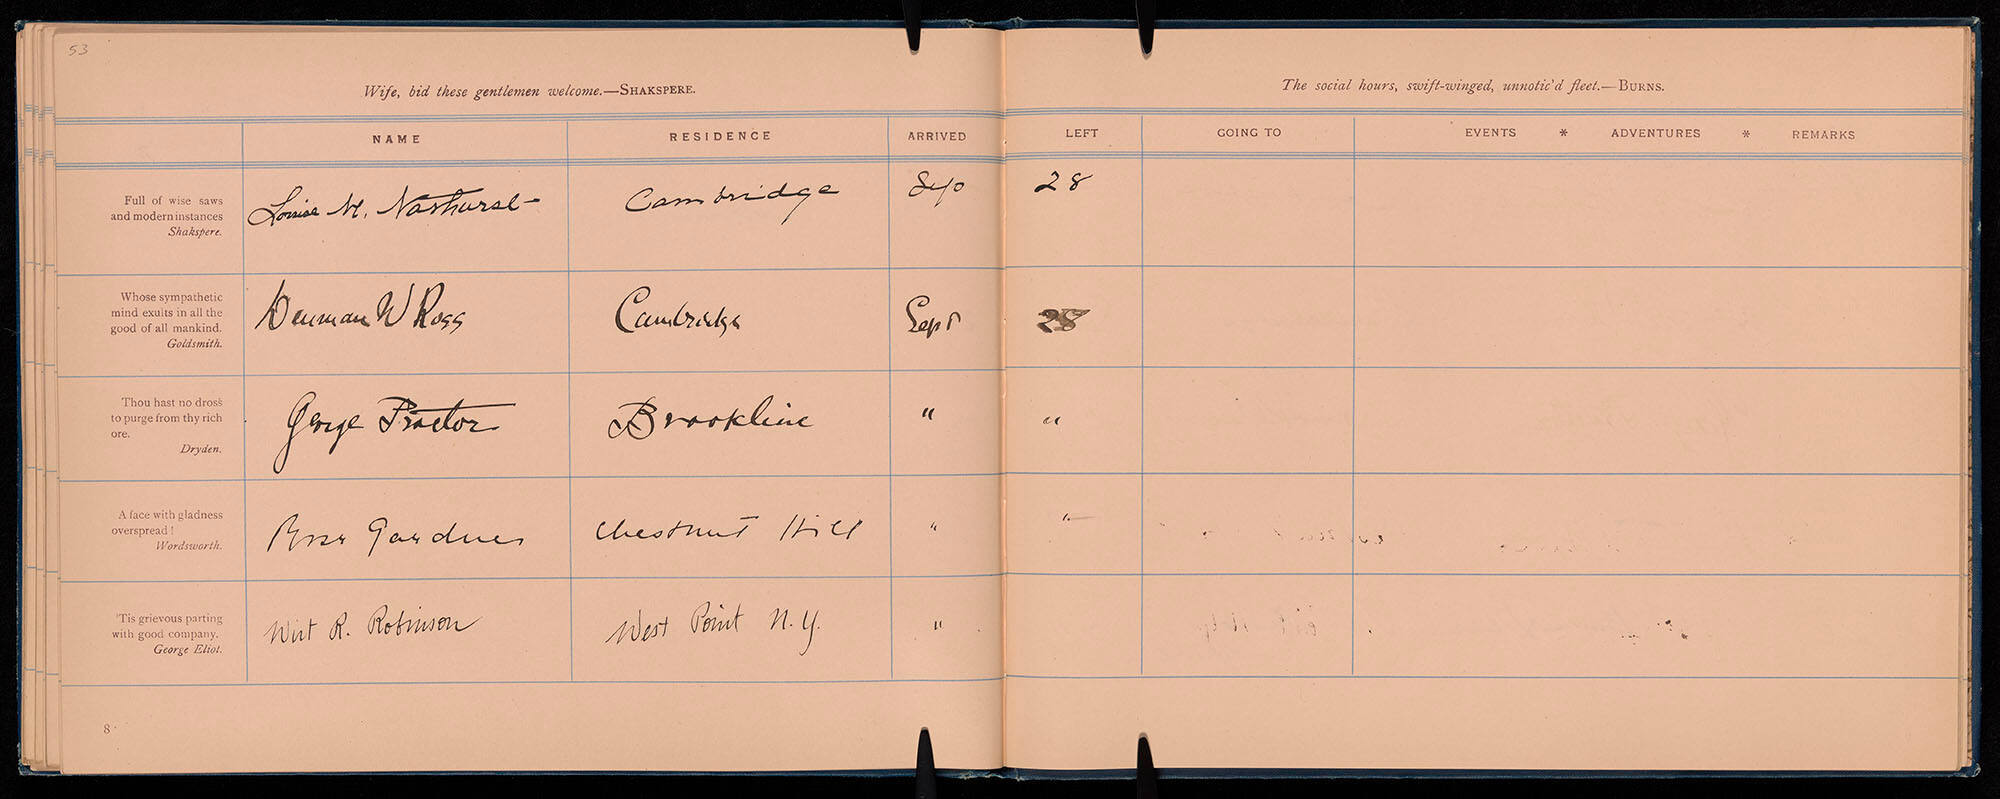 53
Wife, bid these gentlemen welcome.—SHAKSPERE.
The social hours, swift-winged, unnotic'd fleet.—BURNS.
NAME RESIDENCE ARRIVED LEFT GOING TO EVENTS * ADVENTURES * REMARKS
Full of wise saws
and modern instances
Shakspere.
Louise M. Nathurst Cambridge Sep 28
Whose sympathetic
mind exults in all the
good of all mankind.
Goldsmith.
Denman W Ross Cambridge Sept 28
Thou hast no dross
to purge from thy rich
ore.
Dryden.
George Proctor Brookline " "
A face with gladness
overspread!
Wordsworth.
Gardner Chestnut Hill " "
'Tis grievous parting
with good company.
George Eliot.
Wirt R. Robinson West Point N.Y. "
8